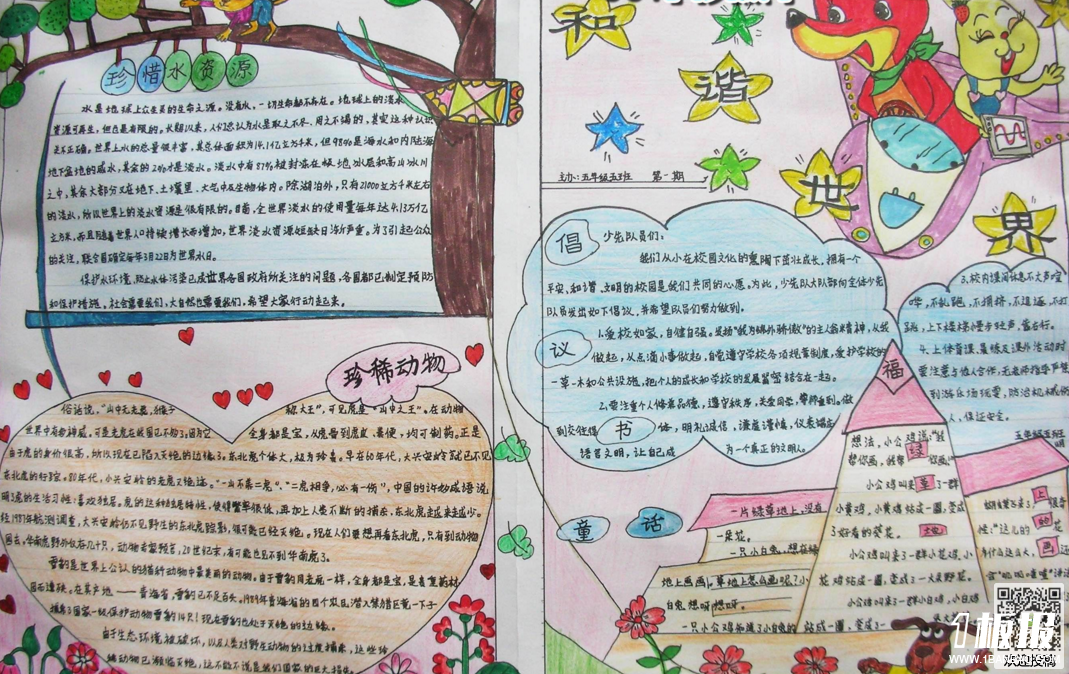 珍惜水资源
水是地球上众生灵的生命之源。没有水，一切生命都不存在。地球上的淡水
资源可再生，但也是有限的。长期以来，人们总认为水是取之不尽、用之不竭的，其实这种认识
是不正确。世界上水的总量很丰富，其总体面积为14.1亿立方千米，但98%是海水和内陆海
地下盆地的咸水，其余的2%才是淡水。淡水中有87%被封冻在极地冰层和高山冰川
之中，其余大部分又在地下、土壤里、大气中及生物体内。除湖泊外，只有21000立方千米左右
的淡水，所以世界上的淡水资源是很有限的。目前，全世界淡水的使用量每年达4.13万亿
立方米，而且随着世界人口持续增长而增加，世界淡水资源短缺日渐严重。为了引起公众
的关注，联合国确定每年3月22日为世界水日。
保护水环境，防止水体污染已成世界各国政府所关注的问题，各国都已制定预防
和保护措施，社会需要我们，大自然也需要我们，希望大家行动起来。
珍稀动物
俗话说，“山中无老虎，猴子
称大王”，可见虎是“山中之王”。在动物
世界中有勇神威，可是老虎在我国已不多了，因为它
全身都是宝，从虎骨到虎皮、
均可制药。正是
由于虎的身价很高，所以现在已陷入灭绝的边缘了。东北虎个体大，极为珍贵。早在60年代，大兴安岭就已不见
东北虎的行踪。80年代，小兴安岭的老虎又绝迹。“一山不藏二虎”、“二虎相争，必有一伤”，中国的许多成语说
明了虎的生活习性：喜欢独居。虎的这种独居特性，使得繁草很低，再加上人类不断的捕杀，东北虎越来越少。
经1987年航测调查，大兴安岭仍不见野生的东北虎踪影，很可能已经灭绝。现在人们要想再看东北虎，只有到动物
园去，华南虎野外仅存几十只，动物专家预言，20世纪末，有可能也见不到华南虎了。
雪豹是世界上公认的猫科动物中最美丽的动物。由于雪豹同老虎一样，全身都是宝，是名贵药材
因而遭殃。在其产地——青海省，雪豹已不足百头。1984年青海省的四个农民潜入禁猎区竟一下子
捕杀了国家一级保护动物雪豹14只！现在雪豹也处于灭绝的边缘。
由于生态环境被破坏，以及人类对野生动物的过度捕杀，这些珍
稀动物已濒临灭绝，这不能不说是我们国家的巨大损失。
和
谐
世
界
主办：五年级五班 第一期
倡
议
书
少先队员们：
我们从小在校园文化的熏陶下茁壮成长，拥有一个
平安、和谐、文明的校园是我们共同的心愿。为此，少先队大队部向全体少先
队员发出如下倡议，并希望队员们努力做到。
1.爱校如家，自健自强。发扬“我为
骄傲”的主人翁精神，从我
做起，从点滴小事做起，自觉遵守学校各项规章制度，爱护学校的
一草一木和公共设施，把个人的成长和学校的发展紧密结合在一起。
2.要注重个人修养品德，遵守秩序，关爱同学，尊师重到。做
到交往得体，明礼诚信，谦虚谨慎，仪表端庄
语言文明，让自己成
为一个真正的文明人。
3.校内课间休息不大声喧
哗，不乱跑，不拥挤，不追逐，不打
跳，上下楼梯慢步轻声，靠右行。
4.上体育课、晨练及课外活动时
要注意与他人合作，无老师指导严禁
到游乐场玩耍，防治机械伤
人，保证安全。
五年级五班
童话
一片绿草地上，没有
一朵花。
一只小白兔，想在绿
地上画画，草地上怎么画呢？小
白兔想呀想呀。
福
想法，小公鸡说：“我
帮你画，我帮你画！”
小公鸡叫来了一群
小黄鸡，小黄鸡站成一圈，变成
了好看的葵花。
小公鸡叫来了一群小花鸡，小
花鸡站成一圈，变成了一大朵野花。
小公鸡叫来了一群小白鸡，小白鸡
站成一圈，变成了一
1板报
欢迎投稿